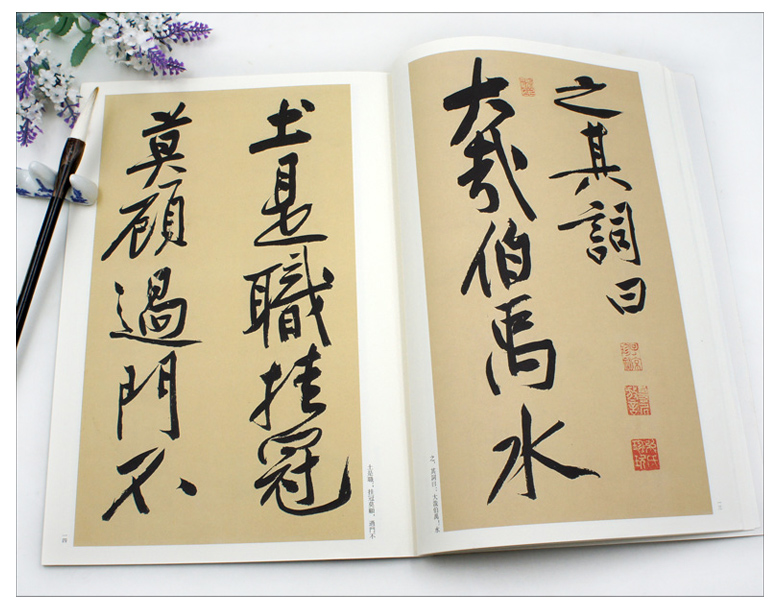 之其詞曰
大哉伯禹水
之。其詞曰：大哉伯禹！水
土是職挂冠
莫顧過門不
土是職，挂冠莫顧，過門不
一四